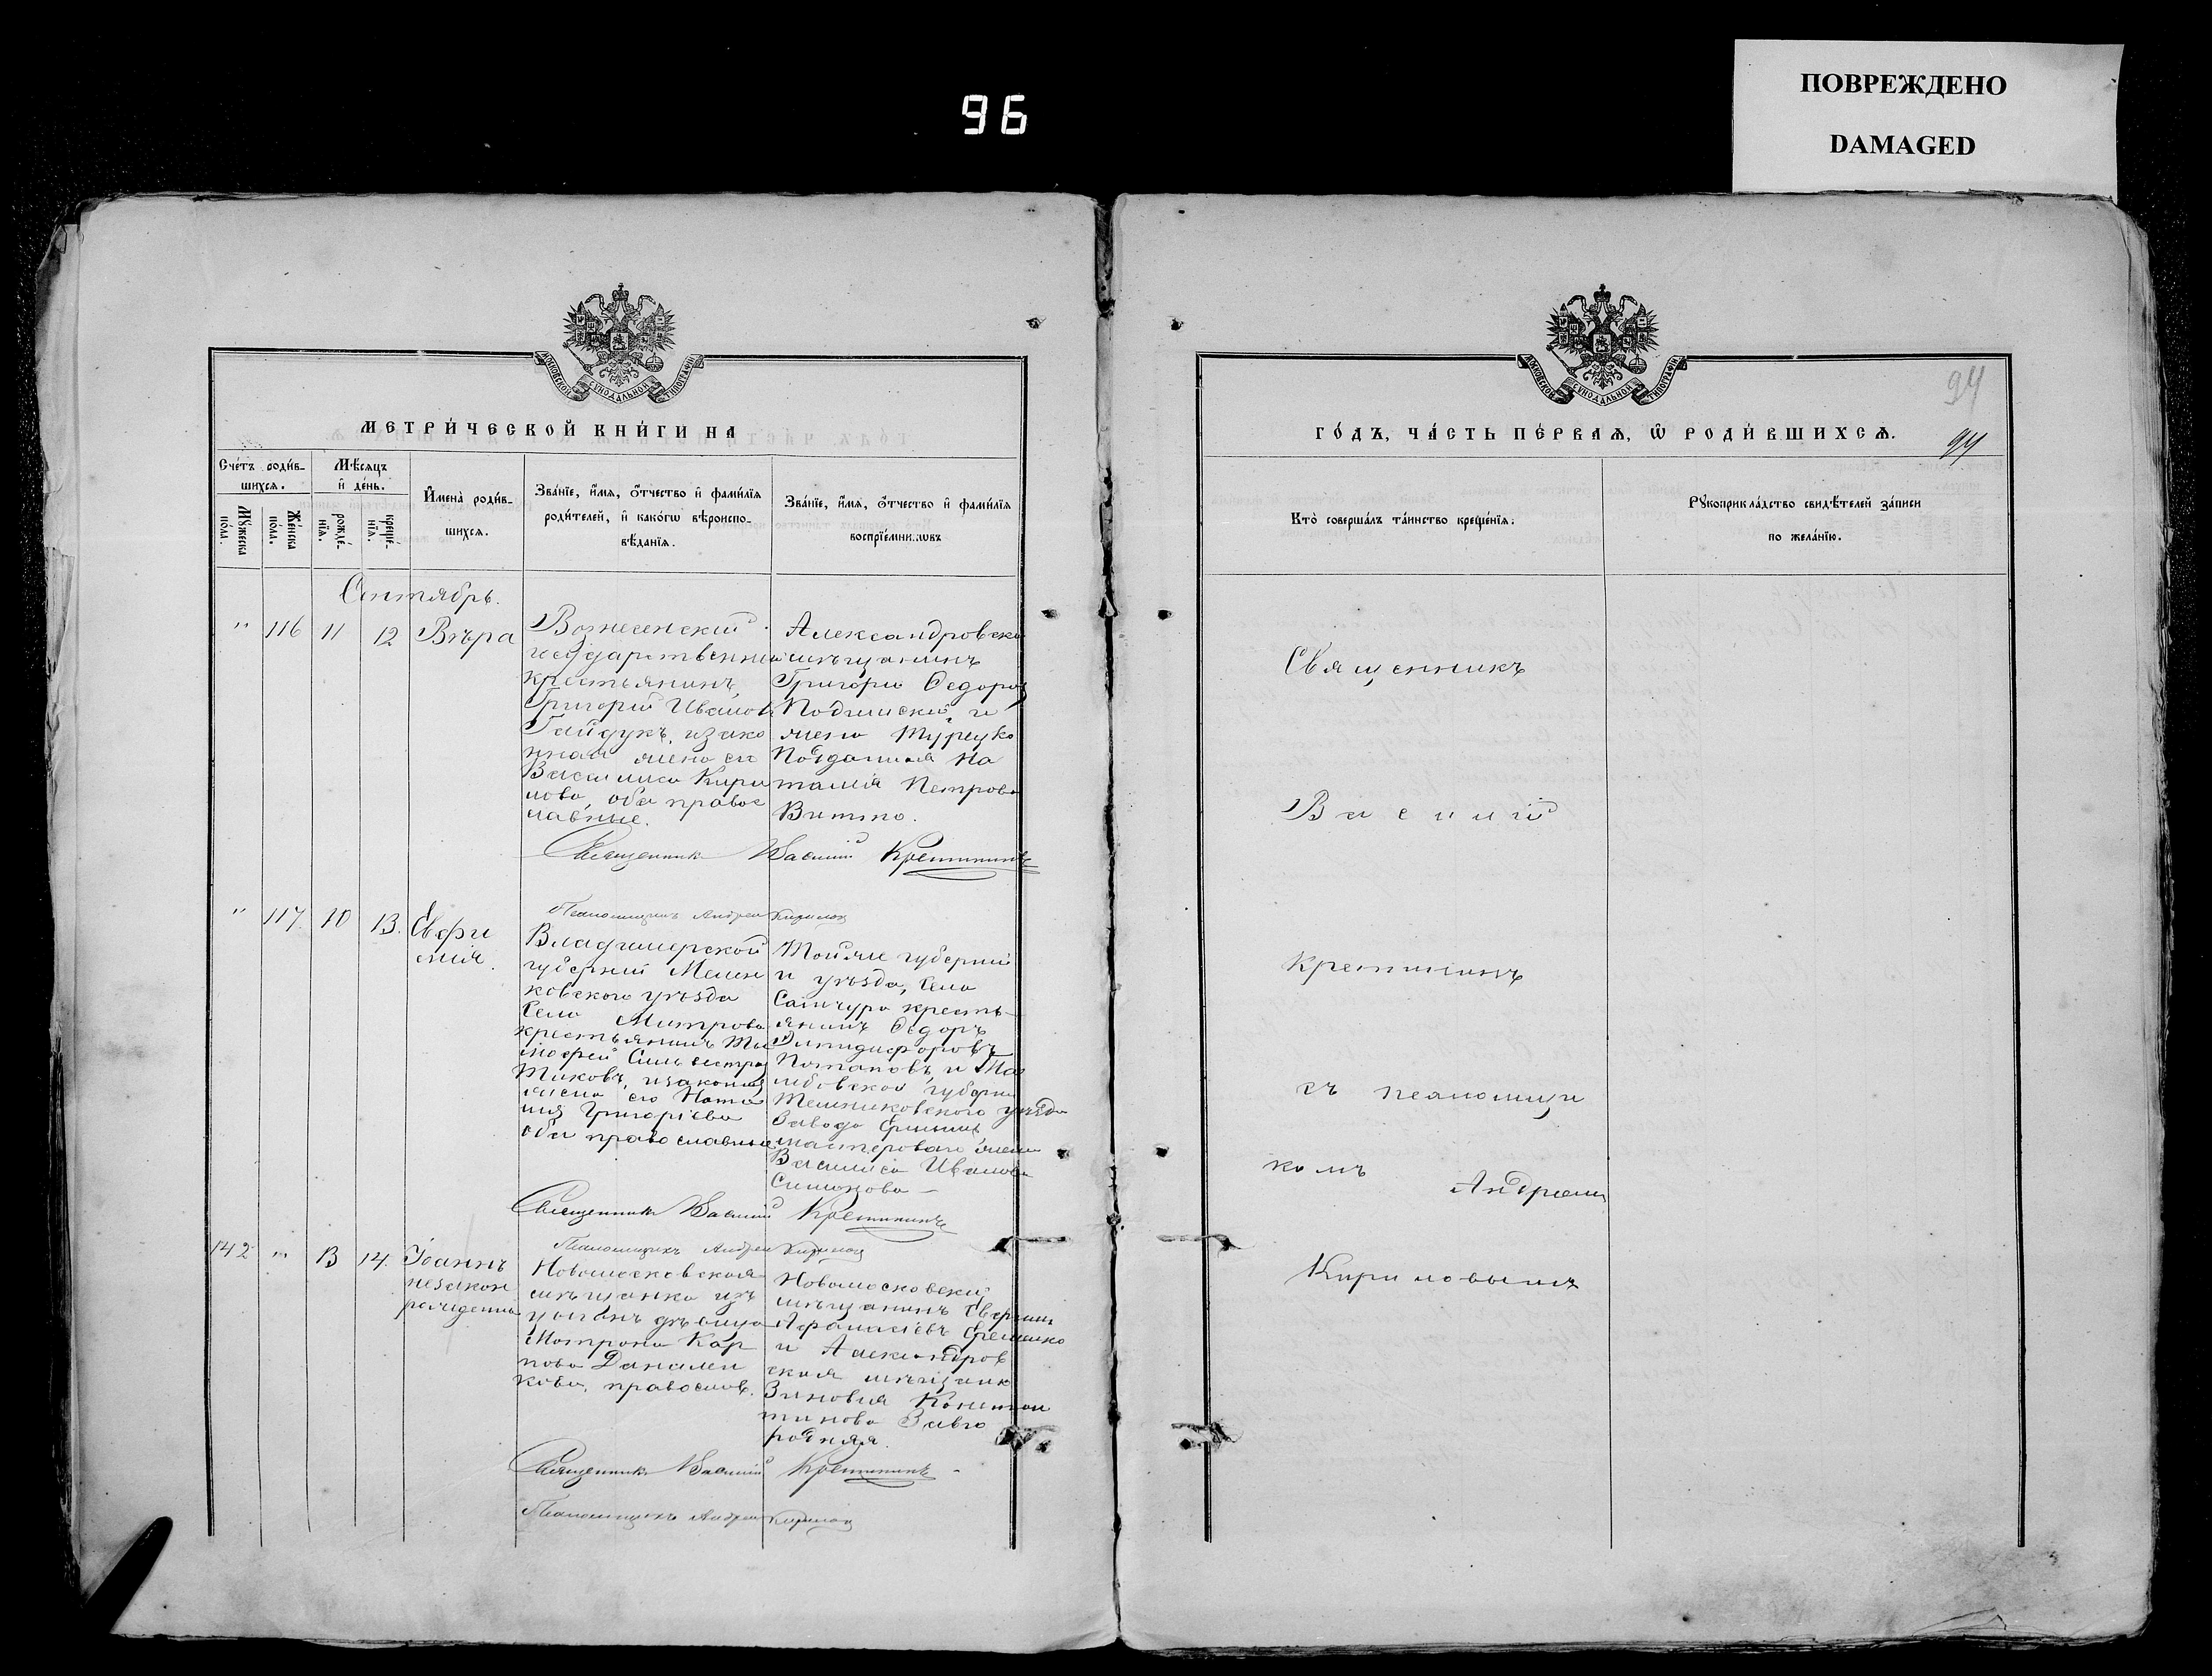 96
ПОВРЕЖДЕНО
DAMAGED
МОСКОВСКОЙ СѴНОДАЛЬНОЙ ТИПОГРАФІИ
МЕТРИ́ЧЕСКОЙ КНИ́ГИ НА
Сче́тъ роди́в-
шихся.
Мѣ́сяцъ
и҆ де́нь.
Мꙋ́жеска по́ла.
Же́нска по́ла.
рожде́-нїѧ.
креще́-нїѧ.
И҆мена̀ роди́в-
шихсѧ.
Зва́нїе, и҆́мѧ, ѻ҆́тчество и҆ фами́лїѧ
роди́телей, и҆ како́гѡ вѣроиспо-
вѣ́данїѧ.
Зва́нїе, и҆́мѧ, ѻ҆́тчество и҆ фами́лїѧ
воспрїе́мникѡвъ
Сентябрь.
" 116 11 12 Вѣра
Вознесенскій
государственный
крестьянинъ
Григорій Иванов
Гайдукъ, и зако
нная жена его
Василиса Кири
лова, оба правос
лавные.
Александровскі
мѣщанинъ
Григорій Ѳедоров
и
жена Турецко
Подданная На
талія Петрова
Витто.
Священникъ Василій Кретининъ
Псаломщикъ Андрей Кирилов
" 117. 10 13. Евфи
мія.
Владимерской
губерніи Мелен
ковского уѣзда
Села Митрова
крестьянинъ Ти
мофей Сильвестров
и законная
жена его Ната
лія Григоріева
оба православные
Той же губерніи
и уѣзда, Села
крестъ-
янинъ Ѳедоръ
Потаповъ, и Та
мбовской губерніи
уѣзда
Завода
мастероваго жена
Василиса Иванова
Симонова
Священникъ Василій Кретининъ
Псаломщикъ Андрей Кирилов
142 " 13 14. Іоаннъ
незакон
рожденны
Новомосковская
мѣщанка изъ
цыганъ дѣвица
Матрона Кар
пова
кова, православ.
Новомосковскій
мѣщанинъ
Афанасіевъ Еременко
и Александров
ская мѣщанк
Зиновія Констан
тинова Завго
родняя.
Священникъ Василій Кретининъ
Псаломщикъ Андрей Кирилов
МОСКОВСКОЙ СѴНОДАЛЬНОЙ ТИПОГРАФІИ
94
ГО́ДЪ, ЧА́СТЬ ПЕ́РВАѦ, Ѽ РОДИ́ВШИХСѦ.
94
Кто̀ соверша́лъ та́инство креще́нїѧ.
Рꙋкоприкла́дство свидѣ́телей за́писи
по жела́нїю.
Священникъ
Василій
Кретининъ
съ псаломщи
комъ
Андреемъ
Кириловымъ